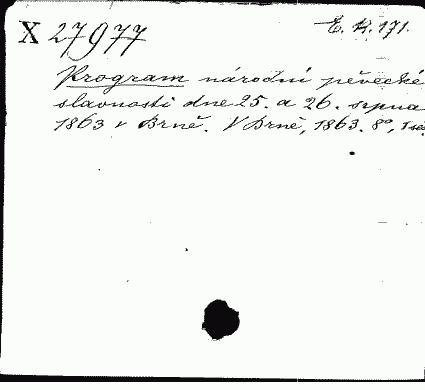 X 27977
E. K. 171.
Program národní pěvecké
slavnosti dne 25. a 26. srpna
1863 v Brně. V Brně, 1863. 8°,